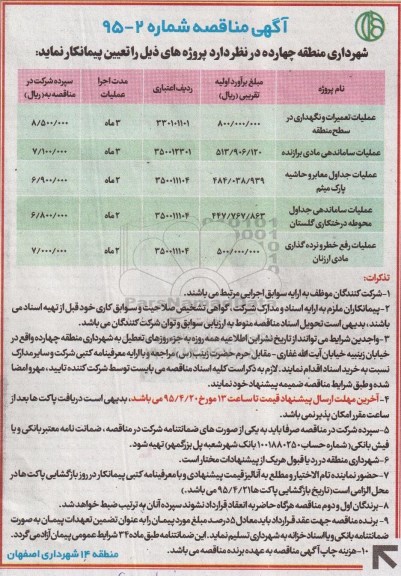 آگهی مناقصه شماره ۲-۹۵
شهرداری منطقه چهارده در نظر دارد پروژه های ذیل را تعیین پیمانکار نماید:
نام پروژه | مبلغ برآورد اولیه تقریبی (ریال) | ردیف اعتباری | مدت اجرا عملیات | سپرده شرکت در مناقصه به (ریال)
عملیات تعمیرات و نگهداری در سطح منطقه | ۸۰۰/۰۰۰/۰۰۰ | ۳۳۰۱۰۱۱۰۱ | ۳ ماه | ۸/۵۰۰/۰۰۰
عملیات ساماندهی مادی برازنده | ۵۱۳/۹۰۶/۱۲۰ | ۳۵۰۰۱۲۳۰۱ | ۳ ماه | ۷/۱۰۰/۰۰۰
عملیات جداول معابر و حاشیه پارک میثم | ۴۸۴/۰۳۸/۹۳۹ | ۳۵۰۰۱۱۱۰۴ | ۲ ماه | ۶/۹۰۰/۰۰۰
عملیات ساماندهی جداول محوطه درختکاری گلستان | ۴۴۷/۷۶۷/۸۶۳ | ۳۵۰۰۱۱۱۰۴ | ۲ ماه | ۶/۸۰۰/۰۰۰
عملیات رفع خطر و نرده گذاری مادی ارزنان | ۵۰۰/۰۰۰/۰۰۰ | ۳۵۰۰۱۱۱۰۴ | ۲ ماه | ۷/۰۰۰/۰۰۰
تذکرات:
۱-شرکت کنندگان موظف به ارایه سوابق اجرایی مرتبط می باشند.
۲- پیمانکاران ملزم به ارایه اسناد و مدارک شرکت، گواهی تشخیص صلاحیت و سوابق کاری خود قبل از تهیه اسناد می
باشند، بدیهی است تحویل اسناد مناقصه منوط به ارزیابی سوابق و توان شرکت کنندگان می باشد.
۳-واجدین شرایط می توانند از تاریخ نشر این اطلاعیه همه روزه به جز روزهای تعطیل به شهرداری منطقه چهارده واقع در
خیابان زینبیه خیابان آیت الله غفاری - مقابل حرم حضرت زینب(س) مراجعه و با ارایه معرفینامه کتبی شرکت و سایر مدارک
نسبت به خرید اسناد اقدام نمایند. لازم به ذکر است کلیه اسناد مناقصه می بایست توسط شرکت کننده تایید، مهر و امضا
شده و طبق شرایط مناقصه ضمیمه پیشنهاد خود نمایند.
۴-آخرین مهلت ارسال پیشنهاد قیمت تا ساعت ۱۳ مورخ ۹۵/۴/۲۰ می باشد، بدیهی است دریافت پاکت ها بعد از
ساعت مقرر امکان پذیر نمی باشد.
۵-سپرده شرکت در مناقصه صرفا باید به یکی از صورت های ضمانتنامه شرکت در مناقصه، ضمانت نامه معتبر بانکی و یا
فیش بانکی( شماره حساب ۱۰۰۱۸۸۰۲۵۰ بانک شهر شعبه پل بزرگمهر) تهیه شود.
۶-شهرداری منطقه در رد یا قبول هر یک از پیشنهادات مختار است.
۷-حضور نماینده تام الاختیار و مطلع به آنالیز قیمت پیشنهادی و با معرفینامه کتبی پیمانکار در روز بازگشایی پاکت ها در
محل الزامی است(تاریخ بازگشایی پاکت ها ۹۵/۴/۲۱ می باشد.)
۸-برندگان اول و دوم مناقصه هرگاه حاضر به انعقاد قرارداد نشوند سپرده آنان به ترتیب ضبط خواهد شد.
۹-برنده مناقصه جهت عقد قرارداد باید معادل ۵ درصد مبلغ مورد پیمان را به عنوان تضمین تعهدات پیمان به صورت
ضمانتنامه بانکی و یا اسناد خزانه به شهرداری تسلیم نماید. این ضمانتنامه طبق ماده ۳۴ شرایط عمومی پیمان آزاد می گردد.
۱۰-هزینه چاپ آگهی مناقصه به عهده برنده مناقصه می باشد.
منطقه ۱۴ شهرداری اصفهان